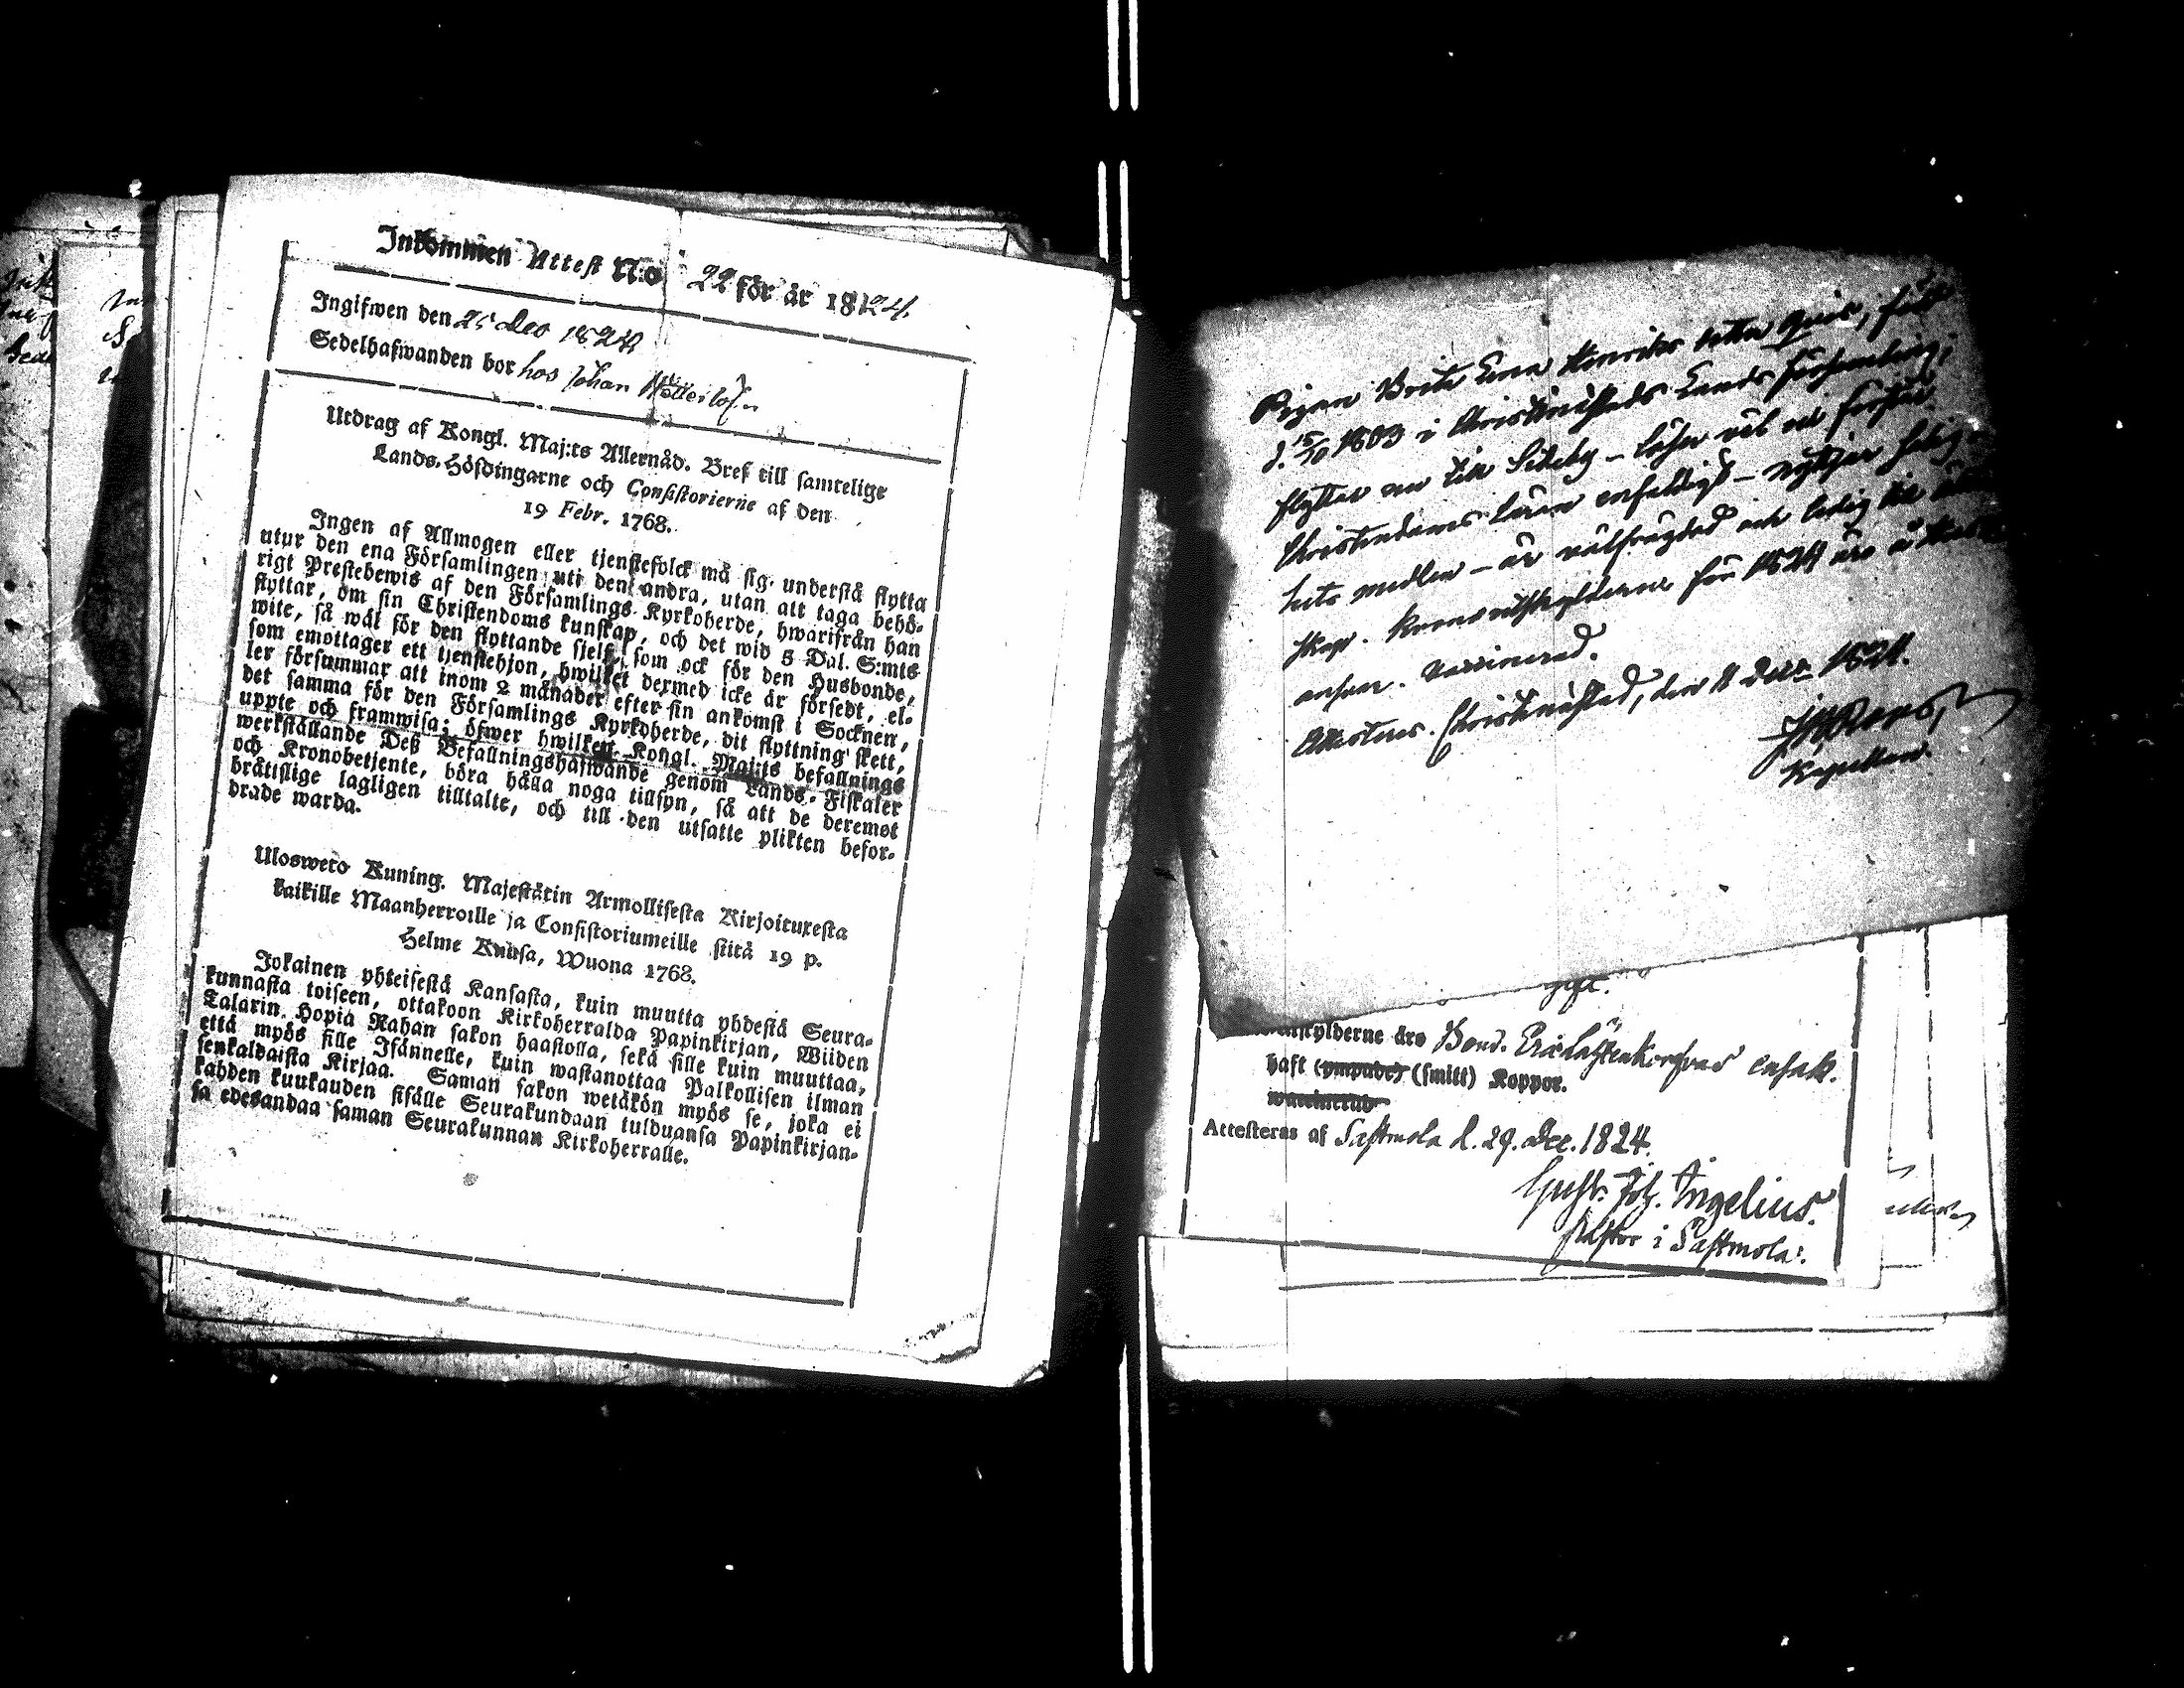 Inkommen Attest N:o 22 för år 1824.
Ingifwen den 25 Dec 1824
Sedelhafwanden bor hos Johan
Utdrag af Kongl. Maj:ts Allernåd. Bref till samtelige
Lands-Höfdingarne och Consistorierne af den
19 Febr. 1768.
Ingen af Allmogen eller tjenstefolck må sig understå flytta
utur den ena Församlingen uti den andra, utan att taga behö-
rigt Prestebewis af den Församlings Kyrkoherde, hwarifrån han
flyttar, om sin Christendoms kunskap, och det wid 5 Dal. S:mts
wite, så wäl för den flyttande sjelf, som ock för den Husbonde,
som emottager ett tjenstehjon, hwilket dermed icke är försedt, el-
ler försummar att inom 2 månader efter sin ankomst i Socknen,
det samma för den Församlings Kyrkoherde, dit flyttning skett,
uppte och framwisa; öfwer hwilken Kongl. Maj:ts befallnings
werkställande Deß Befallningshafwande genom Lands-Fiskaler
och Kronobetjente, böra hålla noga tillsyn, så att de deremot
brätislige lagligen tilltalte, och till den utsatte plikten befor-
drade warda.
Ulosweto Kuning. Majestätin Armollisesta Kirjoituxesta
kaikille Maanherroille ja Consistoriumeille siitä 19 p.
Helme Kuusa, Wuona 1768.
Jokainen yhteisestä Kansasta, kuin muutta yhdestä Seura-
kunnasta toiseen, ottakoon Kirkoherralda Papinkirjan, Wiiden
Talarin Hopia Rahan sakon haastolla, sekä sille kuin muuttaa,
että myös sille Isännelle, kuin wastanottaa Palkollisen ilman
senkaldaista Kirjaa. Saman sakon wetäkön myös se, joka ei
kahden kuukauden sisälle Seurakundaan tulduansa Papinkirjan-
sa edesandaa saman Seurakunnan Kirkoherralle.
Pigan Brita Lena Henriks dotter
d. 15/10 1803 i Christinæstads Lands församling,
flyttar nu till Sideby – läser väl och förstår
Christendoms läran enfaldigt – nyttjar
hets medlen – är välfrägdad och ledig till
skap. Kronoutskylderne för 1824 äro
ansvar. Vaccinerad.
Attesteras. Christinæstad, den 8 Decr 1824.
Kapellan.
gift.
utskylderne äro Bond. ansvar.
haft (ympade) (smitt) Koppor.
waccinerad
Attesteras af Sastmola d. 29. Dec. 1824.
Gust. Joh. Ingelius.
Pastor i Sastmola.